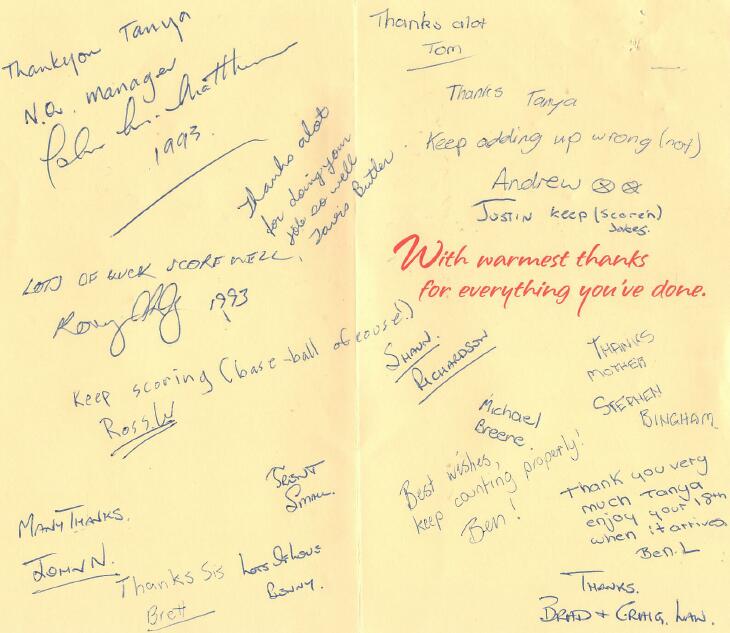 Thankyou Tanya
N.Q. manager
1993.
Thanks alot
for doing your
job so well
Travis Butler
LOTS OF LUCK SCORE WELL,
Rory
1993
Keep scoring (base-ball ofcouse!)
Ross.W
TRENT
SMALL.
MANY THANKS.
JOHN N.
Thanks Sis
Brett
LOTS OF LOVE
Thanks alot
Tom
Thanks Tanya
Keep adding up wrong (not)
Andrew
JUSTIN keep (scoren)
With warmest thanks
for everything you've done.
SHAUN.
RICHARDSON
THANKS
MOTHER
STEPHEN
BINGHAM
Michael
Breene
Best wishes,
keep counting properly!
Ben!
Thank you very
much Tanya
enjoy your 18th
when it arrives
Ben.L
THANKS.
BRAD + CRAIG. LAW.